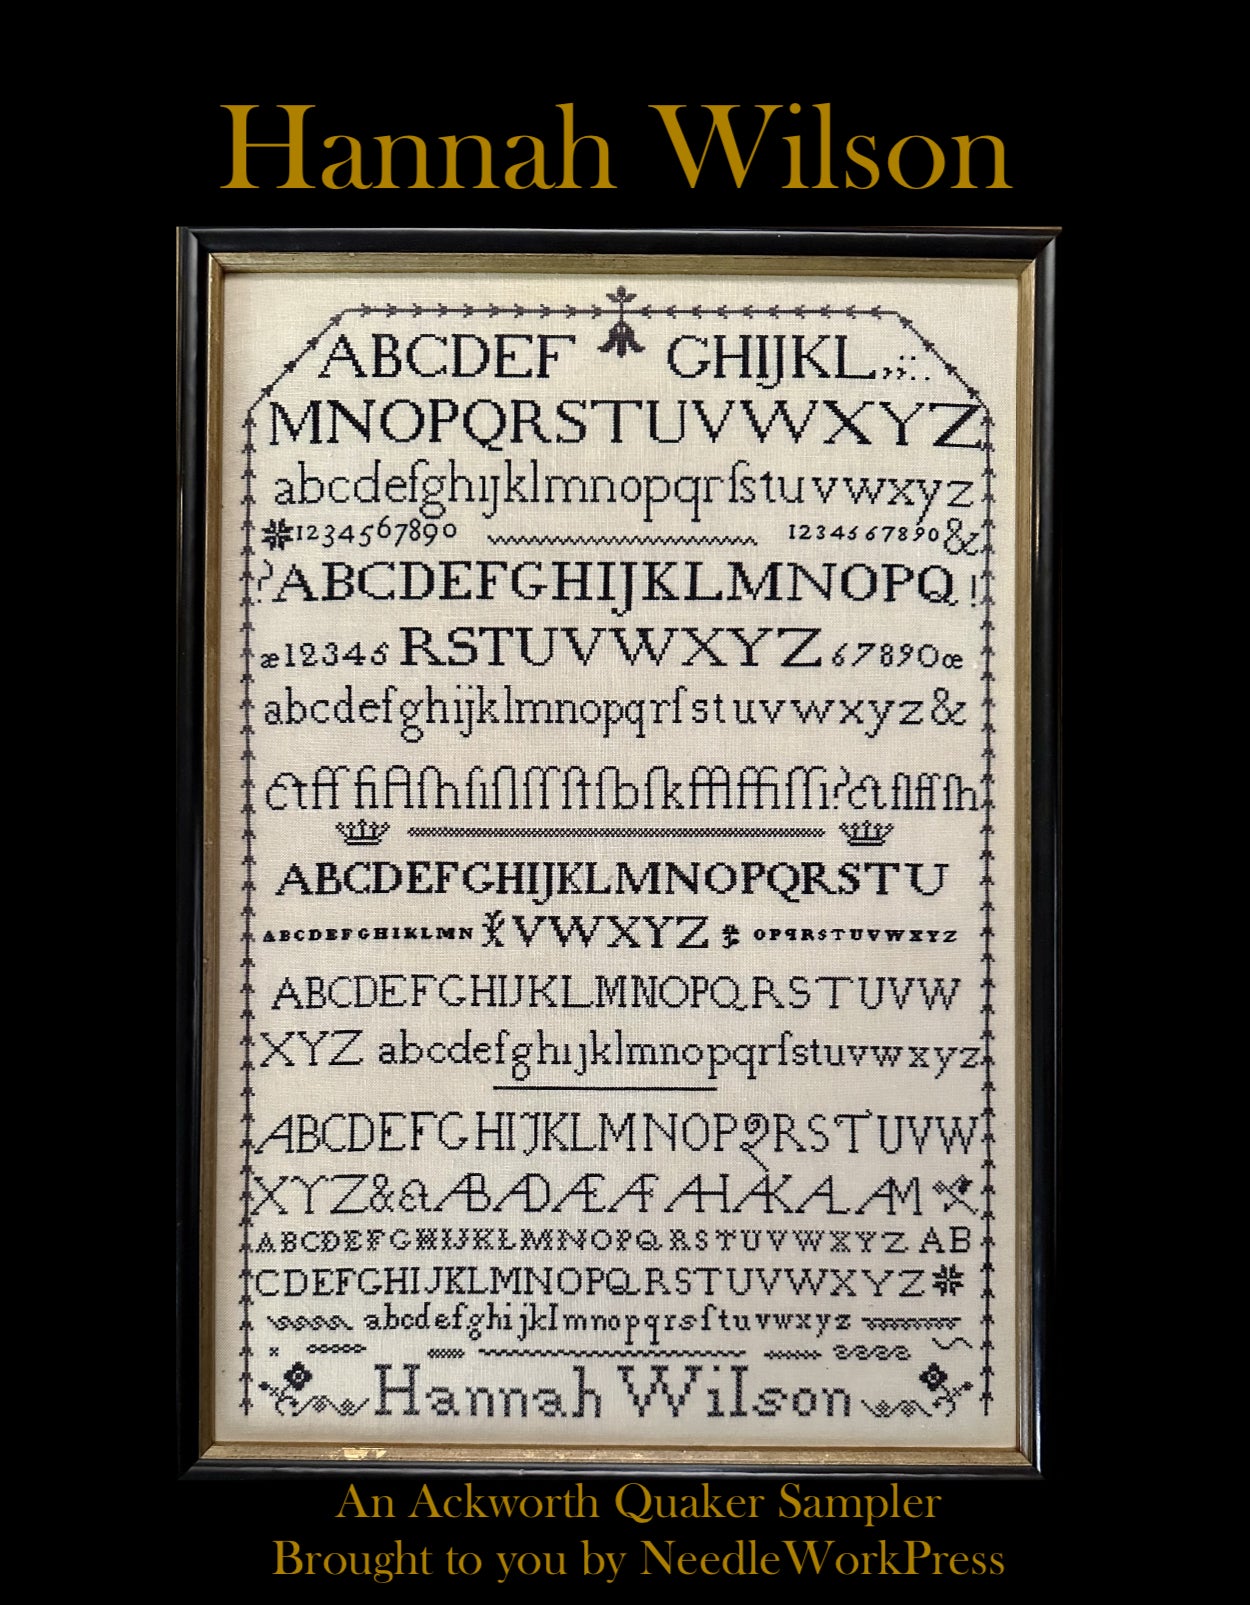 Hannah Wilson
ABCDEF GHIJKL,;:.
MNOPQRSTUVWXYZ
abcdefghıȷklmnopqrſstuvwxyz
1234567890 1234567890&
?ABCDEFGHIJKLMNOPQ!
æ12345 RSTUVWXYZ 67890œ
abcdefghijklmnopqrſstuvwxyz&
ABCDEFGHIJKLMNOPQRSTU
ABCDEFGHIKLMN VWXYZ OPQRSTUVWXYZ
ABCDEFGHIJKLMNOPQRSTUVW
XYZ abcdefghıȷklmnopqrſstuvwxyz
ABCDEFGHIJKLMNOPQRSTUVW
XYZ&
ABCDEFGHIJKLMNOPQRSTUVWXYZ AB
CDEFGHIJKLMNOPQRSTUVWXYZ
abcdefghijklmnopqrsſtuvwxyz
Hannah Wilson
An Ackworth Quaker Sampler
Brought to you by NeedleWorkPress